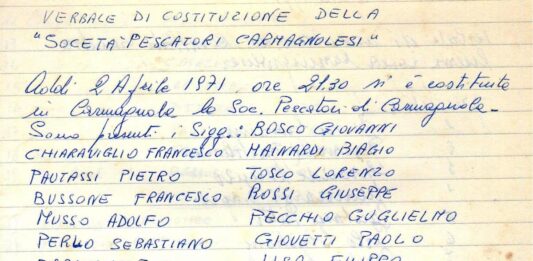 VERBALE DI COSTITUZIONE DELLA
"SOCETA' PESCATORI CARMAGNOLESI"
Addi 2 Aprile 1971, ore 21.30 si è costituita
in Carmagnola la Soc. Pescatori di Carmagnola-
Sono presenti i Sigg.: BOSCO GIOVANNI
CHIARAVIGLIO FRANCESCO MAINARDI BIAGIO
PAUTASSI PIETRO TOSCO LORENZO
BUSSONE FRANCESCO ROSSI GIUSEPPE
MUSSO ADOLFO PECCHIO GUGLIELMO
PERLO SEBASTIANO GIOVETTI PAOLO
FILIPPO